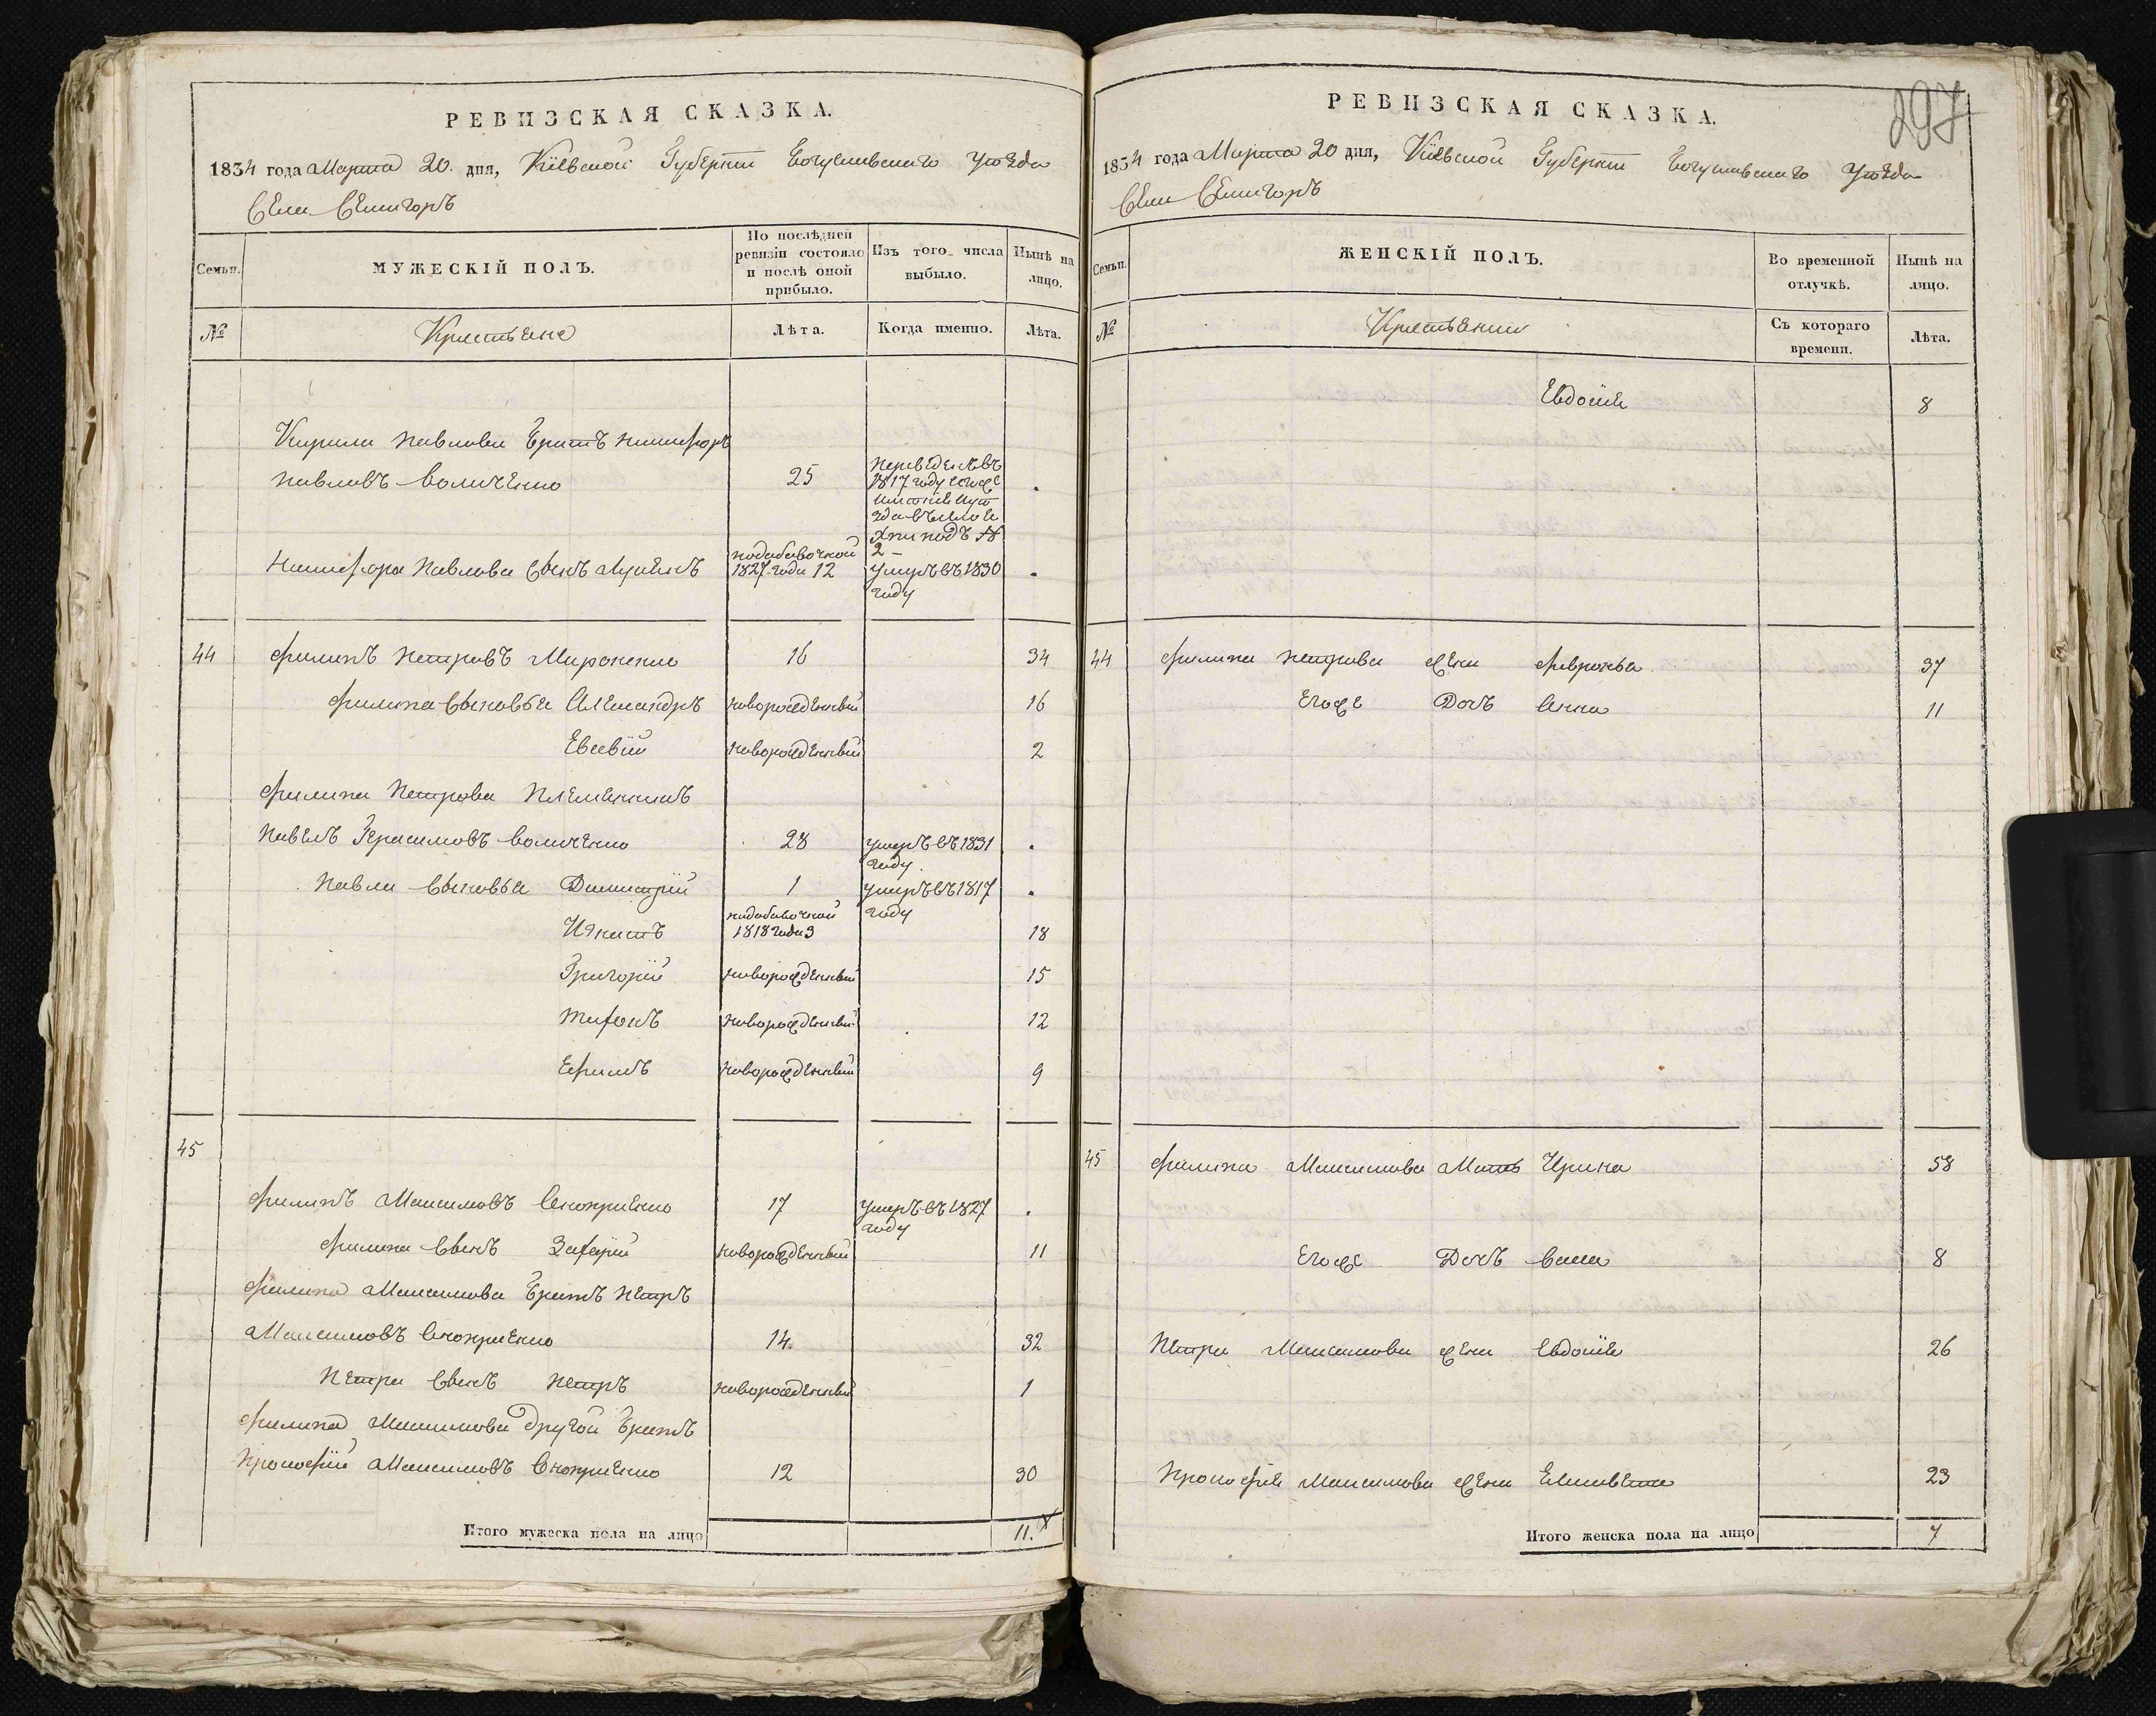 РЕВИЗСКАЯ СКАЗКА.
1834 года Марта 20. дня, Кіевской Губерніи Богуславскаго уѣзда
Села Селигоръ
Семьи. МУЖЕСКІЙ ПОЛЪ. По послѣдней ревизіи состояло и послѣ оной прибыло. Изъ того числа выбыло. Нынѣ на лицо.
№ Крестьяне Лѣта. Когда именно. Лѣта.
Кирила Павлова братъ Никифоръ
Павловъ Воличенко 25 переведенъ въ 1817 году
подъ № 2
Никифора Павлова сынъ 1827 года 12 умеръ въ 1830 году
44 Филипъ Петровъ Мироненко 16 34
Филипа сыновья Александръ новорожденный 16
Евсевій новорожденный 2
Филипа Петрова племенникъ
Павелъ Герасимовъ Воличенко 28 умеръ въ 1831 году
Павла сыновья Димитрій 1 умеръ въ 1817 году
Игнатъ 1818 года 3 18
Григорій новорожденный 15
Тифонъ новорожденный 12
Ефимъ новорожденный 9
45
Филипъ Максимовъ Скоприенко 17 умеръ въ 1827 году
Филипа сынъ Захарій новорожденный 11
Филипа Максимова братъ Петръ
Максимовъ Скоприенко 14. 32
Петра сынъ Петръ новорожденный 1
Филипа Максимова другой братъ
Прокофій Максимовъ Скоприенко 12 30
Итого мужеска пола на лицо 11.
297
РЕВИЗСКАЯ СКАЗКА.
1834 года Марта 20 дня, Кіевской Губерніи Богуславскаго уѣзда
Села Селигоръ
Семьи. ЖЕНСКІЙ ПОЛЪ. Во временной отлучкѣ. Нынѣ на лицо.
№ Крестьянки Съ котораго времени. Лѣта.
Евдокія 8
44 Филипа Петрова жена Февронья 37
Егоже Дочь Анна 11
45 Филипа Максимова Мать Ирина 58
Егоже Дочь 8
Петра Максимова жена Евдокія 26
Прокофія Максимова жена Елисавета 23
Итого женска пола на лицо 7